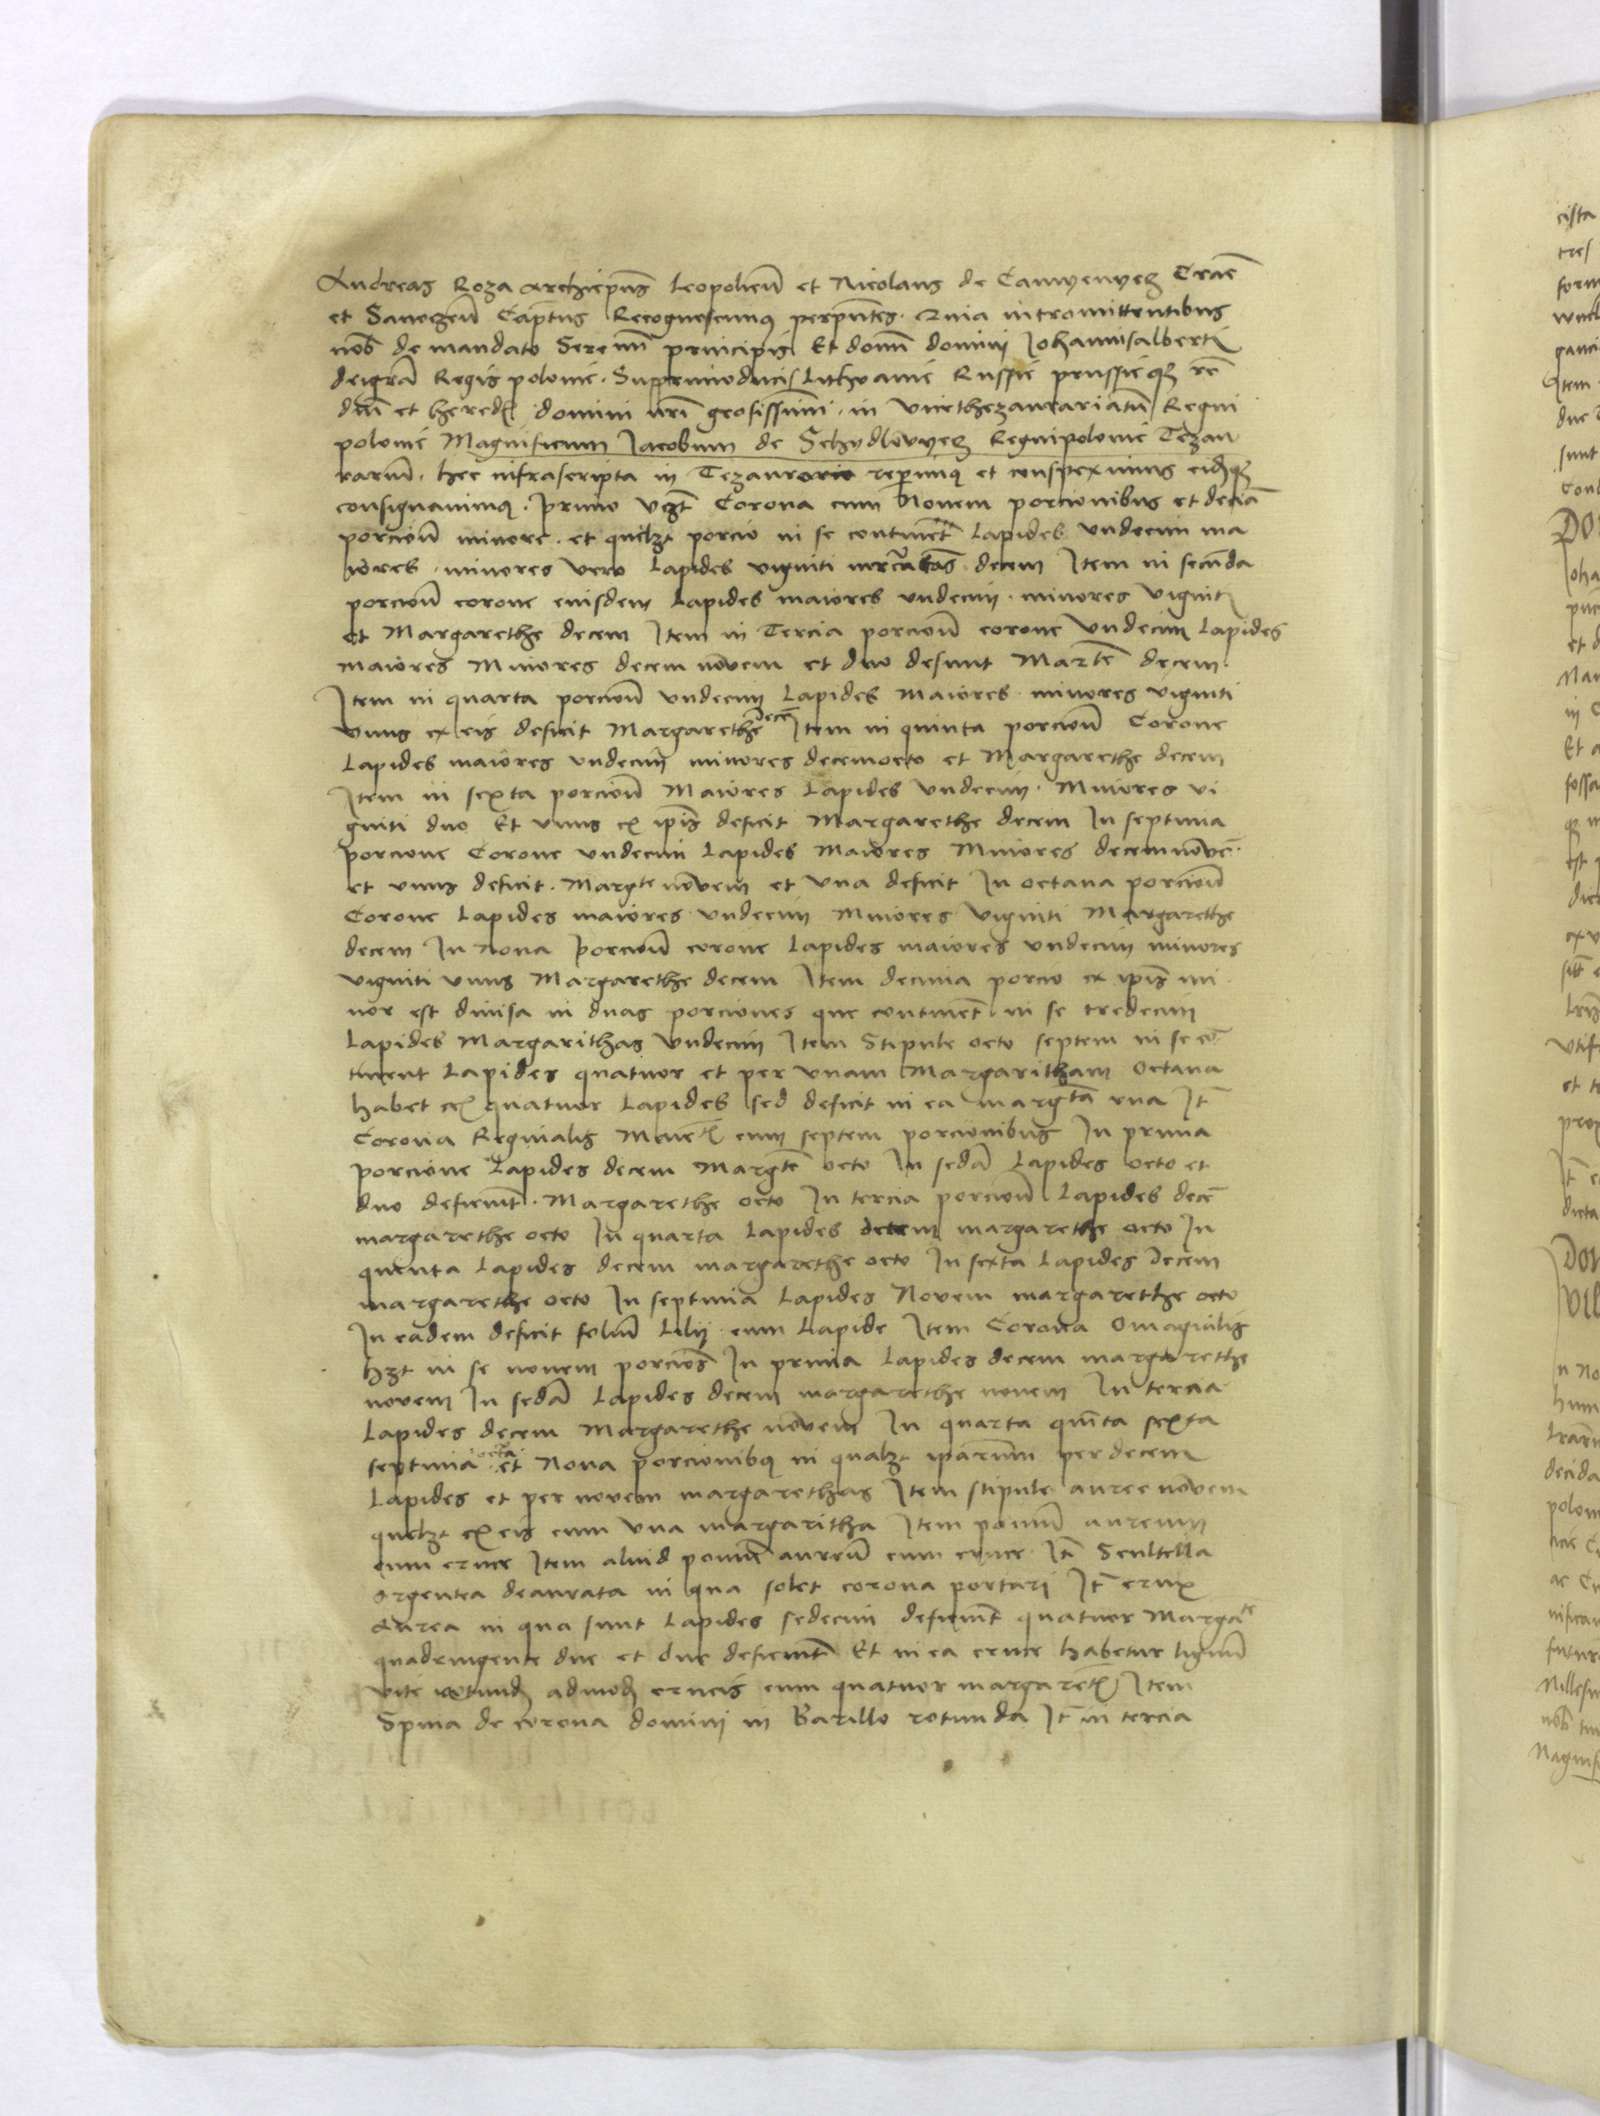 Andreas Roza Archiep̄us Leopolieñ et Nicolaus de Camyenyecz Craē
et Sanoceñ Capt̄us Recognoscimus per p̄ntes. Quia intromittentibus
nob̄ de mandato Seren̄mi principis Et domī dominj Johannisalbertj
deigrā Regis polonie. Supremiducis Lithvanie Russie prussieqȝ rē
dn̄i et heredis domini nr̄i gr̄osissimi. in vicethezaurariatū Regni
polonie Magnificum Jacobum de Schydlovyecz Regnipolonie Tezau
rariū. hec infrascripta in Tezaurario rep̄imus et conspeximus eidēqȝ
consignavimus. primo vȝt Corona cum Novem porcionibus et decīa
porcioñ minore. et quelȝt porcio in se continēt Lapides undecim ma
iores. minores vero Lapides viginti margaritas decem Item in secūda
porcioñ corone eiusdem Lapides maiores undecim. minores vigintj
et Margarethe decem Item in Tercia porcioñ corone undecim Lapides
maiores Minores decem novem et duo desunt Martē decem.
Item in quarta porcioñ undecim Lapides maiores. minores viginti
vnus ex eis deficit Margarethe decē Item in quinta porcioñ Corone
Lapides maiores undecim minores decemocto et Margarethe decem
Item in sexta porcioñ Maiores Lapides undecim. Minores vi
ginti duo Et vnus ex ip̄is deficit Margarethe decem In septima
porcione Corone undecim Lapides Maiores Minores decemnovē.
et vnus deficit. Margte novem et vna deficit In octava porcioñ
Corone Lapides maiores undecim Minores viginti Margarethe
decem In Nona porcioñ corone Lapides maiores undecim minores
viginti vnus Margarethe decem Item decima porcio ex ip̄is mi
nor est divisa in duas porciones que continēt in se tredecim
Lapides Margarithas undecim Item Stipule octo septem in se cō
tinent Lapides quatuor et per vnam Margaritham Octava
habet ecȷ quatuor Lapides sed deficit in ea margtā vna Jt̄
Corona Reginalis cum septem porcionibus In prima
porcione Lapides decem Margtē octo In sc̄dā Lapides octo et
duo deficiūt. Margarethe octo In tercia porcioñ Lapides decē
margarethe octo In quarta Lapides decem margarethe octo In
quinta Lapides decem margarethe octo In sexta Lapides Decem
margarethe octo In septima Lapides Novem margarethe octo
In eadem deficit foliū Lilij cum Lapide Item Corona Omagialis
hȝt in se novem porciōes In prima Lapides decem margarethe
novem In sc̄dā Lapides decem margarethe novem In tercia
Lapides decem Margarethe novem In quarta quīta sexta
septima octa et Nona porcionibus in qualȝt ip̄arum per decem
Lapides et per novem margarethas Item stipule auree novem
quelȝt ex eis cum vna margaritha Item pomū aureum
cum cruce Item aliud pomū aureū cum cruce Jt̄ Scultella
Argentea deaurata in qua solet corona portari Jt̄ crux
Aurea in qua sunt Lapides sedecim deficiūt quatuor Margate
quadringente due et due deficiūt Et in ea cruce habetur lignū
vite rotundȝ admodȝ crucis cum quatuor margaretȷ Item
Spina de corona dominj in Barillo rotunda Jt̄ in tercia